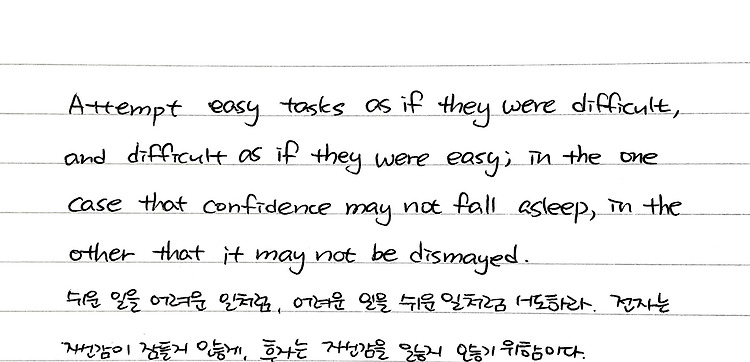 Attempt easy tasks as if they were difficult,
and difficult as if they were easy; in the one
case that confidence may not fall asleep, in the
other that it may not be dismayed.
쉬운 일을 어려운 일처럼, 어려운 일을 쉬운 일처럼 시도하라. 전자는
자신감이 잠들지 않게, 후자는 자신감을 잃지 않기 위함이다.